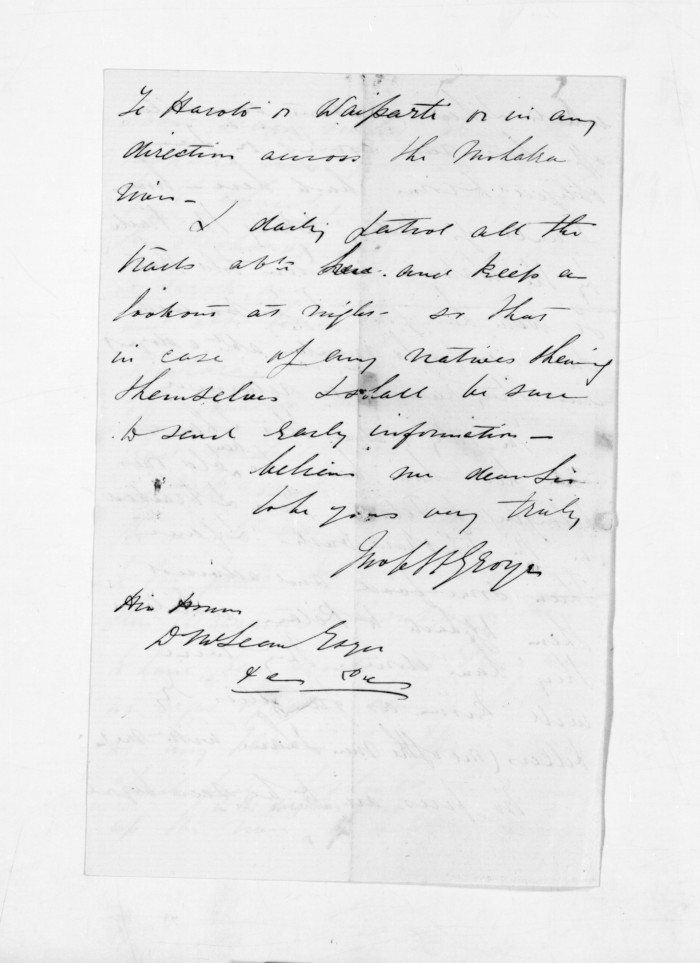 Te Haroto or Waiparti or in any
direction across the Mohaka
River—
I daily patrol all the
tracks abt here. and keep a
lookout at night— so that
in case of any natives shewing
themselves I shall be sure
to send early information—
believe me dear Sir
to be yours very truly
His Honor
D McLean Esqre
&c &c